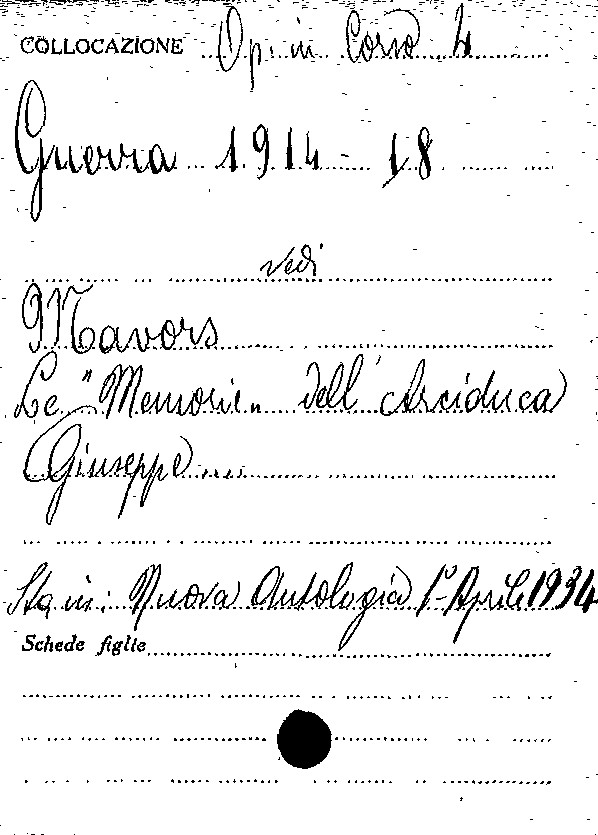 COLLOCAZIONE Op. in Corso 4
Guerra 1914-18
vedi
Mavors
Le "Memorie" dell'Arciduca
Giuseppe....
Sta in: Nuova Antologia 1°- Aprile 1934
Schede figlie